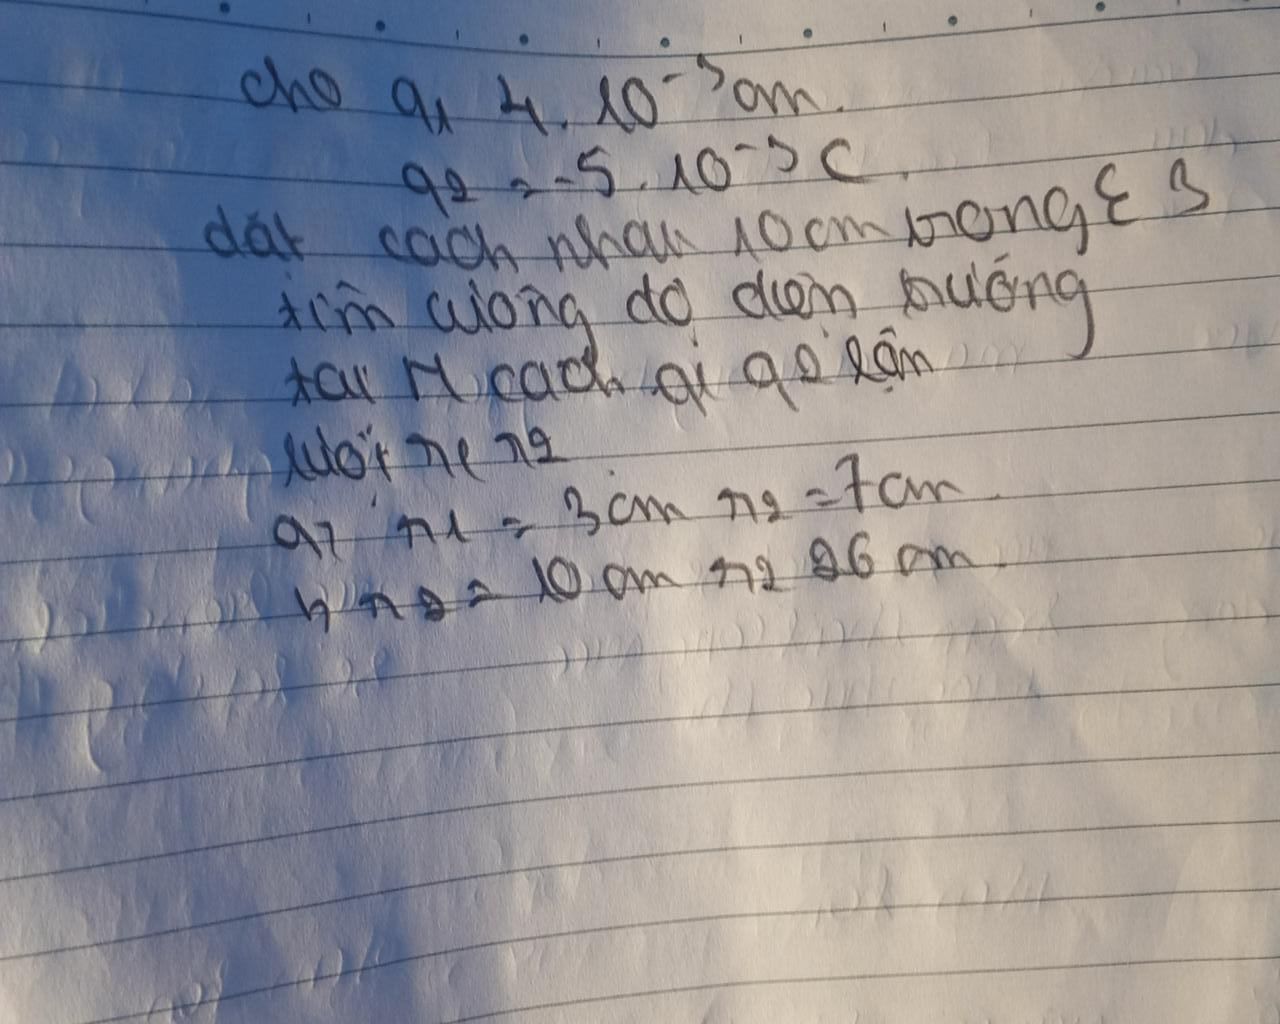 cho q1 4.10⁻⁵cm.
q2 = -5.10⁻⁵C.
dặt cach nhau 10cm trong ε 3
tìm cường dộ diện trường
tại M cach q1 q2 lần
lượt r1 r2
a, r1 = 3cm r2 = 7cm
b, r2 = 10 cm r2 26 cm.